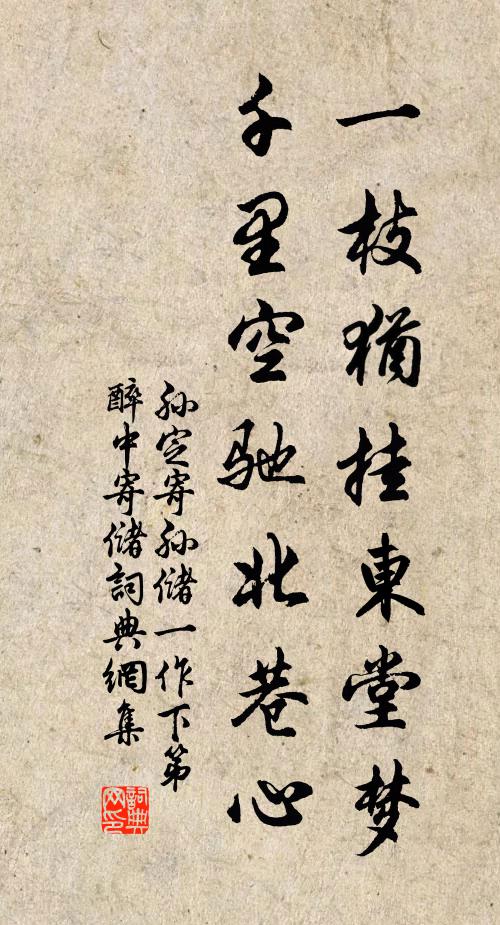 一枝猶挂東堂梦
千里空馳北巷心
孙定寄孙儲一作下第
醉中寄儲詞典網集
詞典网印